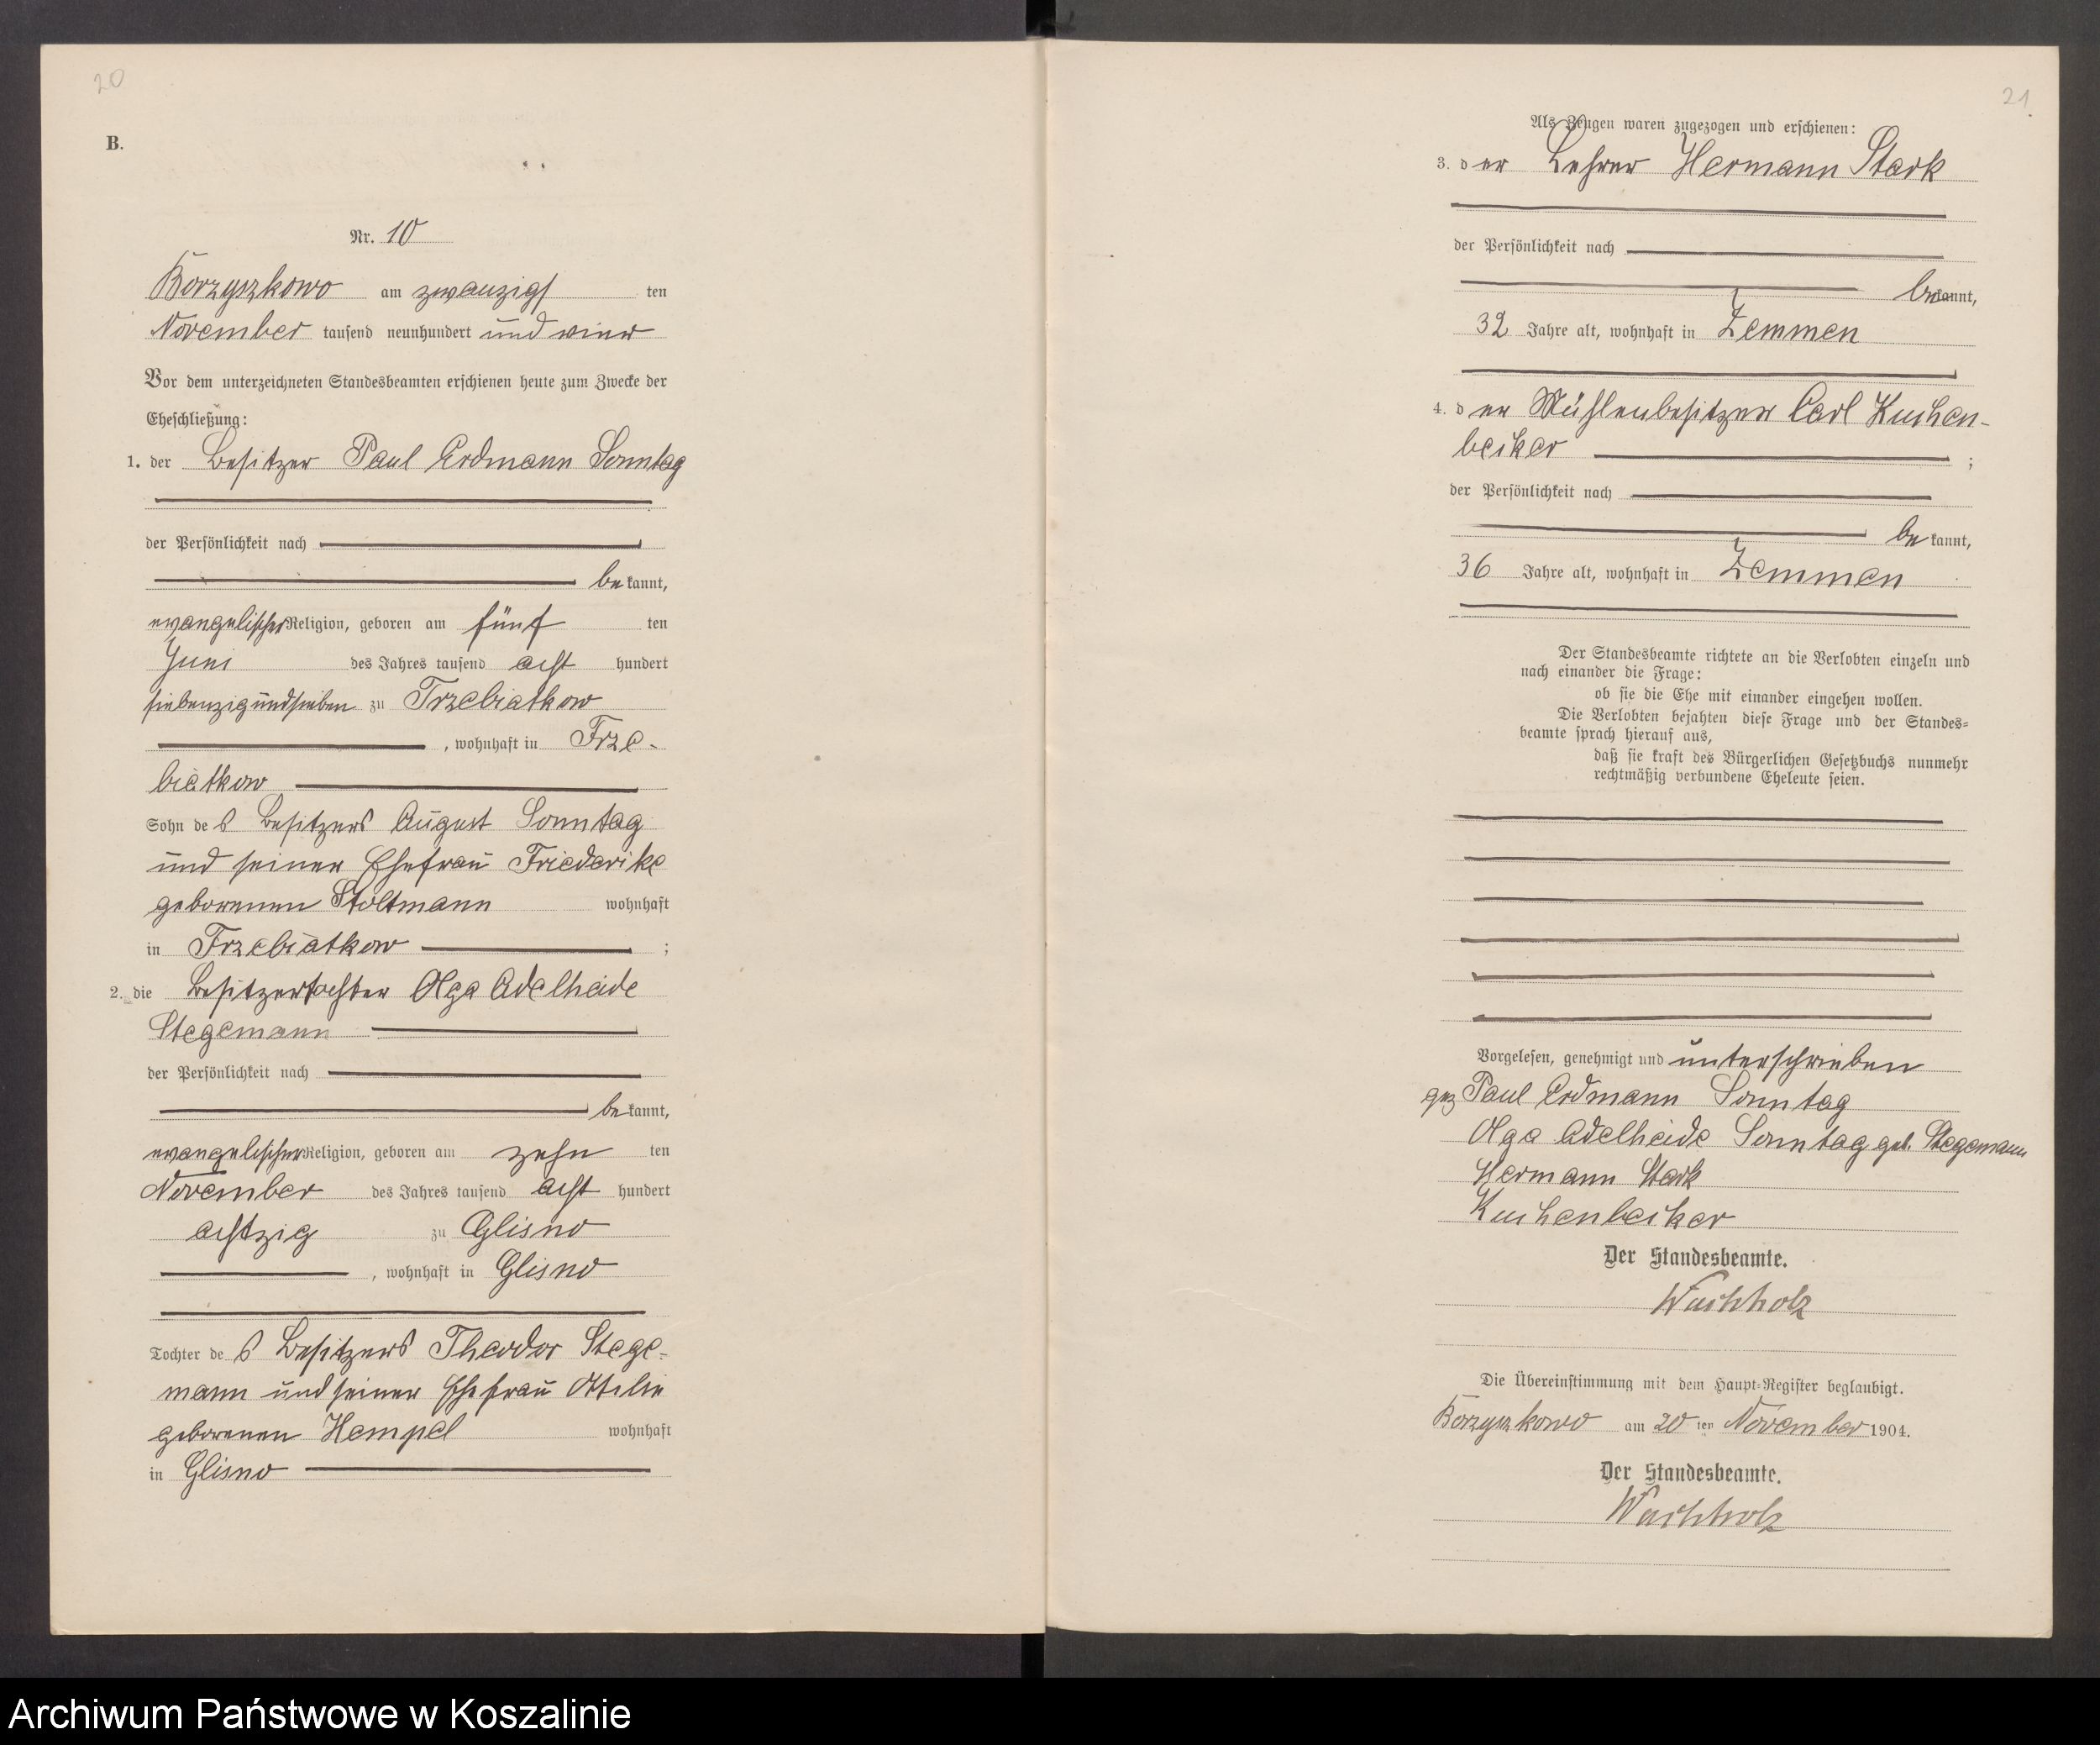 20
B.
Nr. 10
Borzyszkowo am zwanzigs ten
November tausend neunhundert und vier
Vor dem unterzeichneten Standesbeamten erschienen heute zum Zwecke der
Eheschließung:
1. der Besitzer Paul Erdmann Sonntag
der Persönlichkeit nach
be kannt,
evangelischer Religion, geboren am fünf ten
Juni des Jahres tausend acht hundert
siebenzigundsieben zu Trzebiatkow
, wohnhaft in Trze-
biatkow
Sohn des Besitzers August Sonntag
und seiner Ehefrau Friederike
geborenen Stoltmann wohnhaft
in Trzebiatkow ;
2. die Besitzertochter Olga Adelheide
Stegemann
der Persönlichkeit nach
be kannt,
evangelischer Religion, geboren am zehn ten
November des Jahres tausend acht hundert
achtzig zu Glisno
, wohnhaft in Glisno
Tochter des Besitzers Theodor Stege-
mann und seiner Ehefrau Ottilie
geborenen Hempel wohnhaft
in Glisno
21
Als Zeugen waren zugezogen und erschienen:
3. der Lehrer Hermann Stark
der Persönlichkeit nach
bekannt,
32 Jahre alt, wohnhaft in Zemmen
4. der Mühlenbesitzer Carl Kuchen-
becker ;
der Persönlichkeit nach
be kannt,
36 Jahre alt, wohnhaft in Zemmen
Der Standesbeamte richtete an die Verlobten einzeln und
nach einander die Frage:
ob sie die Ehe mit einander eingehen wollen.
Die Verlobten bejahten diese Frage und der Standes-
beamte sprach hierauf aus,
daß sie kraft des Bürgerlichen Gesetzbuchs nunmehr
rechtmäßig verbundene Eheleute seien.
Vorgelesen, genehmigt und unterschrieben
gez Paul Erdmann Sonntag
Olga Adelheide Sonntag geb. Stegemann
Hermann Stark
Kuchenbecker
Der Standesbeamte.
Wachholz
Die Übereinstimmung mit dem Haupt-Register beglaubigt.
Borzyszkowo am 20 ten November 1904.
Der Standesbeamte.
Wachholz
Archiwum Państwowe w Koszalinie